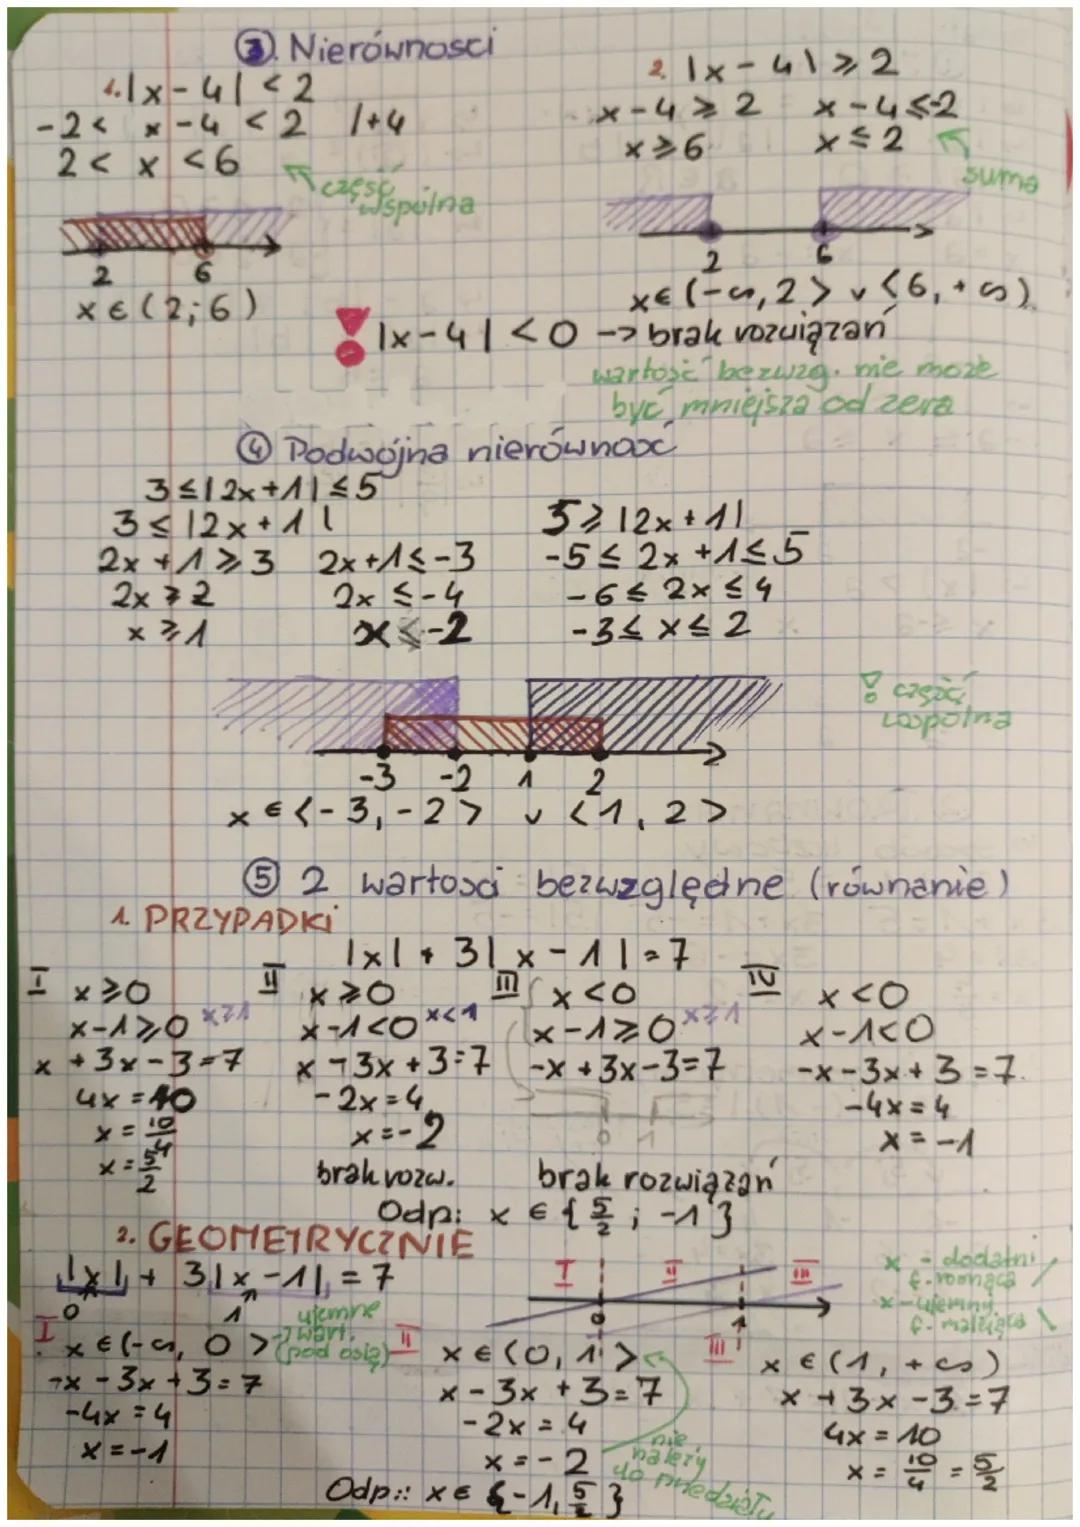 ③ Nierównosci
1. |x-4| < 2
-2 < x-4 < 2 /+4
2 < x < 6
część wspólna
2 6
x ∈ (2;6)
2. |x-4| ≥ 2
x-4 ≥ 2 x-4 ≤-2
x ≥ 6 x ≤ 2
suma
2 6
x∈(-∞,2> ∪ <6,+∞)
! |x-4| < 0 -> brak rozwiązań
wartość bezwzg. nie może
być mniejsza od zera
④ Podwójna nierówność
3 ≤ |2x+1| ≤ 5
3 ≤ |2x+1|
2x+1 ≥ 3 2x+1 ≤ -3
2x ≥ 2 2x ≤ -4
x ≥ 1 x ≤ -2
5 ≥ |2x+1|
-5 ≤ 2x+1 ≤ 5
-6 ≤ 2x ≤ 4
-3 ≤ x ≤ 2
! część wspólna
-3 -2 1 2
x ∈ <-3,-2> ∪ <1,2>
⑤ 2 wartosci bezwzględne (równanie)
1. PRZYPADKI
|x| + 3|x-1| = 7
I x ≥ 0
x-1 ≥ 0 x≥1
x + 3x - 3 = 7
4x = 10
x = 10/4
x = 5/2
II x ≥ 0
x-1 < 0 x<1
x - 3x + 3 = 7
-2x = 4
x = -2
brak rozw.
III x < 0
x-1 ≥ 0 x≥1
-x + 3x - 3 = 7
0 1
brak rozwiązań
IV x < 0
x-1 < 0
-x - 3x + 3 = 7
-4x = 4
x = -1
Odp: x ∈ {5/2 ; -1}
2. GEOMETRYCZNIE
|x| + 3|x-1| = 7
0 1
ujemne
wart.
(pod osią)
I II III
0 1
x - dodatni
f. rosnąca /
x - ujemny
f. malejąca \
I x ∈ (-∞, 0>
-x - 3x + 3 = 7
-4x = 4
x = -1
II x ∈ (0, 1>
x - 3x + 3 = 7
-2x = 4
x = -2
nie
należy
do przedziału
III x ∈ (1, +∞)
x + 3x - 3 = 7
4x = 10
x = 10/4 = 5/2
Odp:: x ∈ {-1, 5/2}